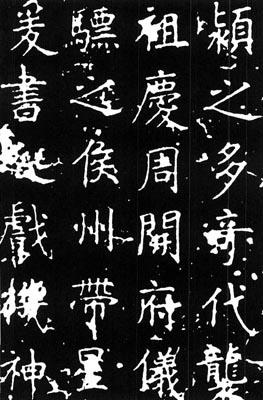 之多奇代龍
祖慶周開府儀
驃侯州帶星
爰書戲機神